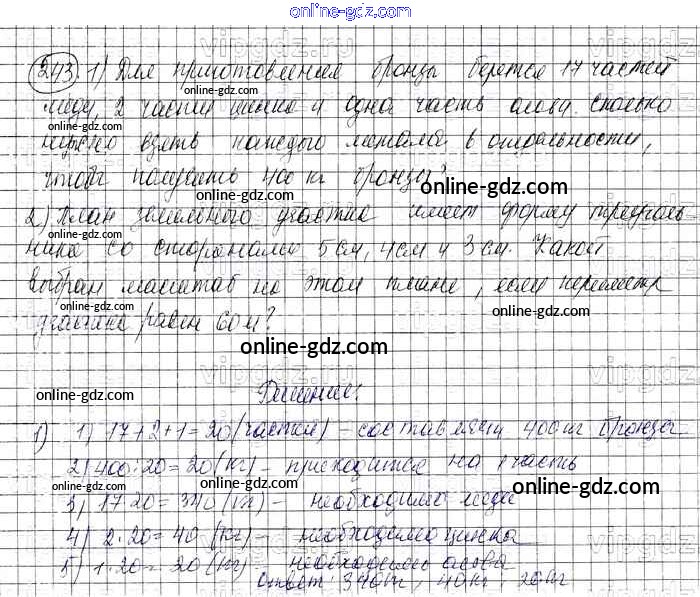 online-gdz.com
243. 1) Для приготовления бронзы берется 17 частей
меди, 2 части цинка и одна часть олова. Сколько
нужно взять каждого металла в отдельности,
чтобы получить 400 кг бронзы?
2) План земельного участка имеет форму треуголь
ника со сторонами 5 см, 4 см и 3 см. Какой
выбран масштаб на этом плане, если периметр
участка равен 60 м?
Решение:
1) 1) 17+2+1=20 (частей) – составляют 400 кг бронзы
2) 400:20=20 (кг) – приходится на 1 часть
3) 17·20=340 (кг) – необходимо меди
4) 2·20=40 (кг) – необходимо цинка
5) 1·20=20 (кг) – необходимо олова
Ответ: 340 кг, 40 кг, 20 кг
online-gdz.com
online-gdz.com
online-gdz.com
online-gdz.com
online-gdz.com
online-gdz.com
online-gdz.com
online-gdz.com
online-gdz.com
online-gdz.com
online-gdz.com
online-gdz.com
online-gdz.com